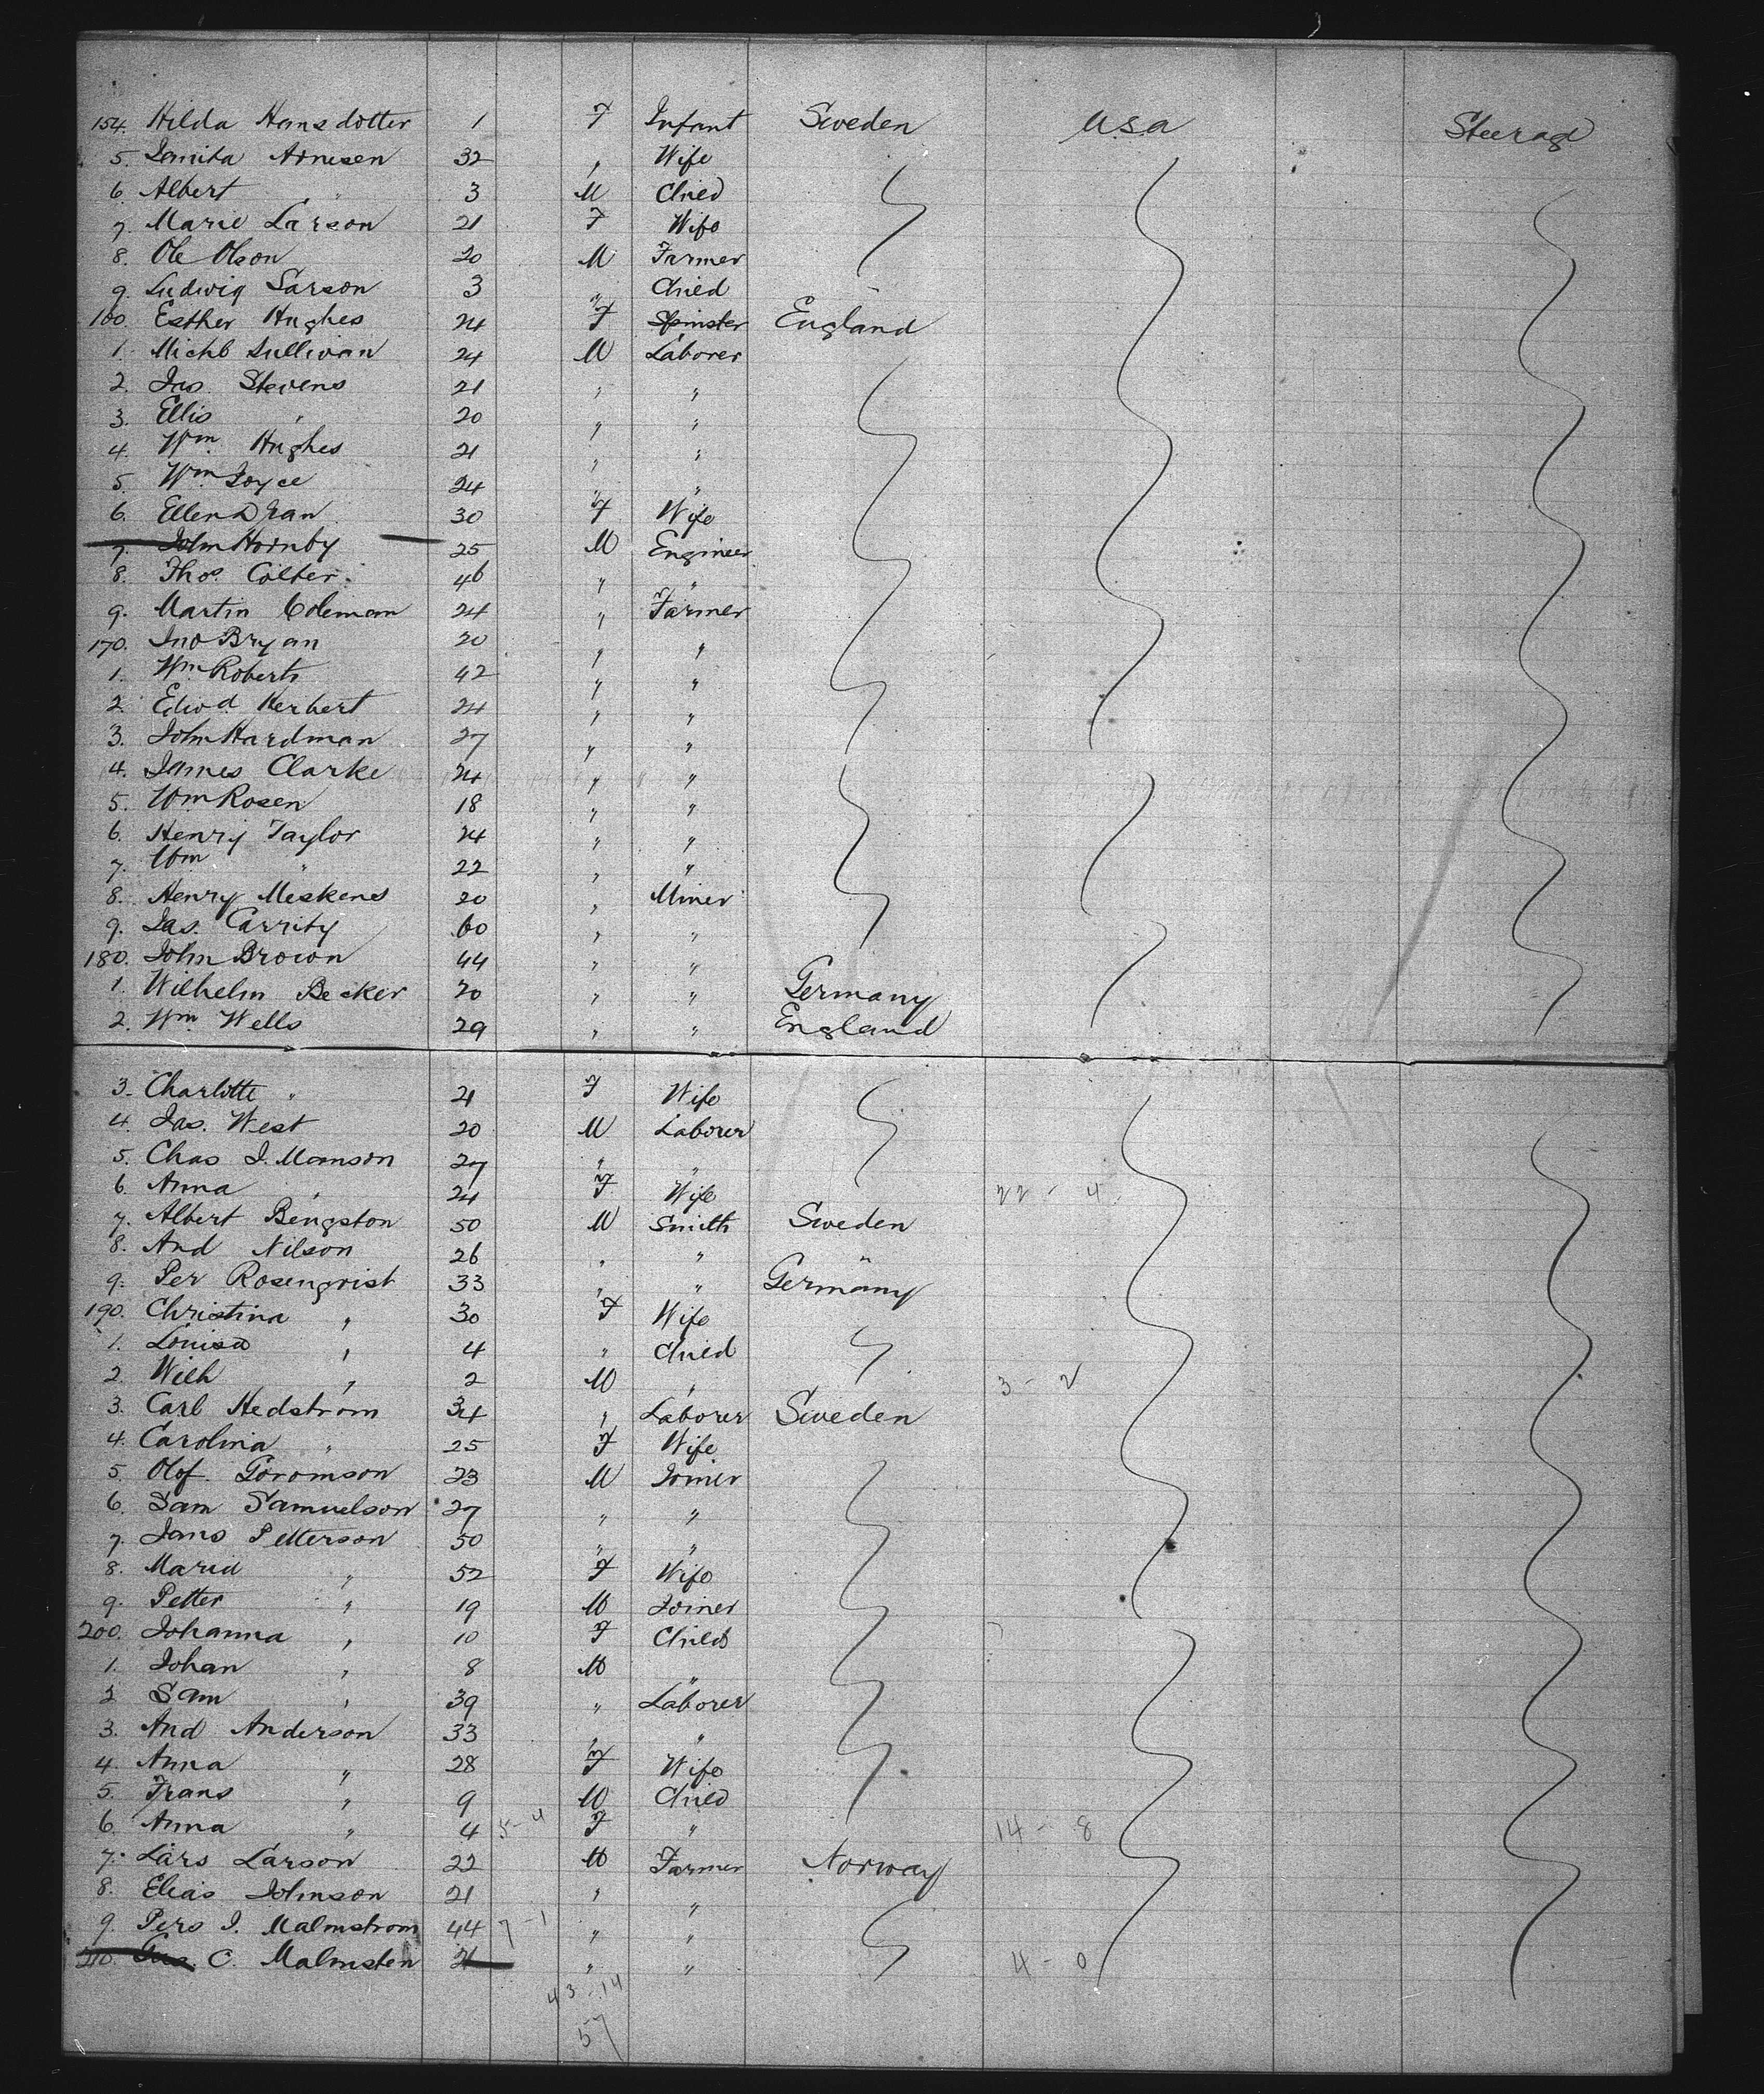 154. Hilda Hansdotter 1 F Infant Sweden USA Steerage
5. Arnesen 32 " Wife
6. Albert " 3 M Child
7. Marie Larson 21 F Wife
8. Ole Olson 20 M Farmer
9. Ludwig Larson 3 " Child
160. Esther Hughes 24 F Spinster England
1. Michl Sullivan 24 M Laborer
2. Jas. Stevens 21 " "
3. Ellis " 20 " "
4. Wm Hughes 21 " "
5. Wm Joyce 24 " "
6. Ellen 30 F Wife
7. John Hornby 25 M Engineer
8. Thos. Colter 46 " "
9. Martin Coleman 24 " Farmer
170. Jno Bryan 20 " "
1. Wm Roberts 42 " "
2. Edwd Herbert 24 " "
3. John Hardman 27 " "
4. James Clarke 24 " "
5. Wm Rosen 18 " "
6. Henry Taylor 24 " "
7. Wm " 22 " "
8. Henry Meskens 20 " Miner
9. Jas. Carrity 60 " "
180. John Brown 44 " "
1. Wilhelm Becker 20 " " Germany
2. Wm Wells 29 " " England
3. Charlotte " 21 F Wife
4. Jas. West 20 M Laborer
5. Chas J. Manson 27 " "
6. Anna " 24 F Wife 22 - 4
7. Albert Bengston 50 M Smith Sweden
8. And Nilson 26 " " "
9. Per Rosenqvist 33 " " Germany
190. Christina " 30 F Wife
1. Louisa " 4 " Child
2. Wilh " 2 M " 3 - 2
3. Carl Hedstrom 34 " Laborer Sweden
4. Carolina " 25 F Wife
5. Olof Goromson 23 M Joiner
6. Sam Samuelson 27 " "
7. Jans Petterson 50 " "
8. Maria " 52 F Wife
9. Petter " 19 M Joiner
200. Johanna " 10 F Child
1. Johan " 8 M "
2 Sam " 39 " Laborer
3. And Anderson 33 " "
4. Anna " 28 F Wife
5. Frans " 9 M Child
6. Anna " 4 5-4 F " 14 - 8
7. Lars Larson 22 M Farmer Norway
8. Elias Johnson 21 " "
9. Pers J. Malmstrom 44 7-1 " "
210. C. Malmsten 21 " " 4 - 0
43-14
57